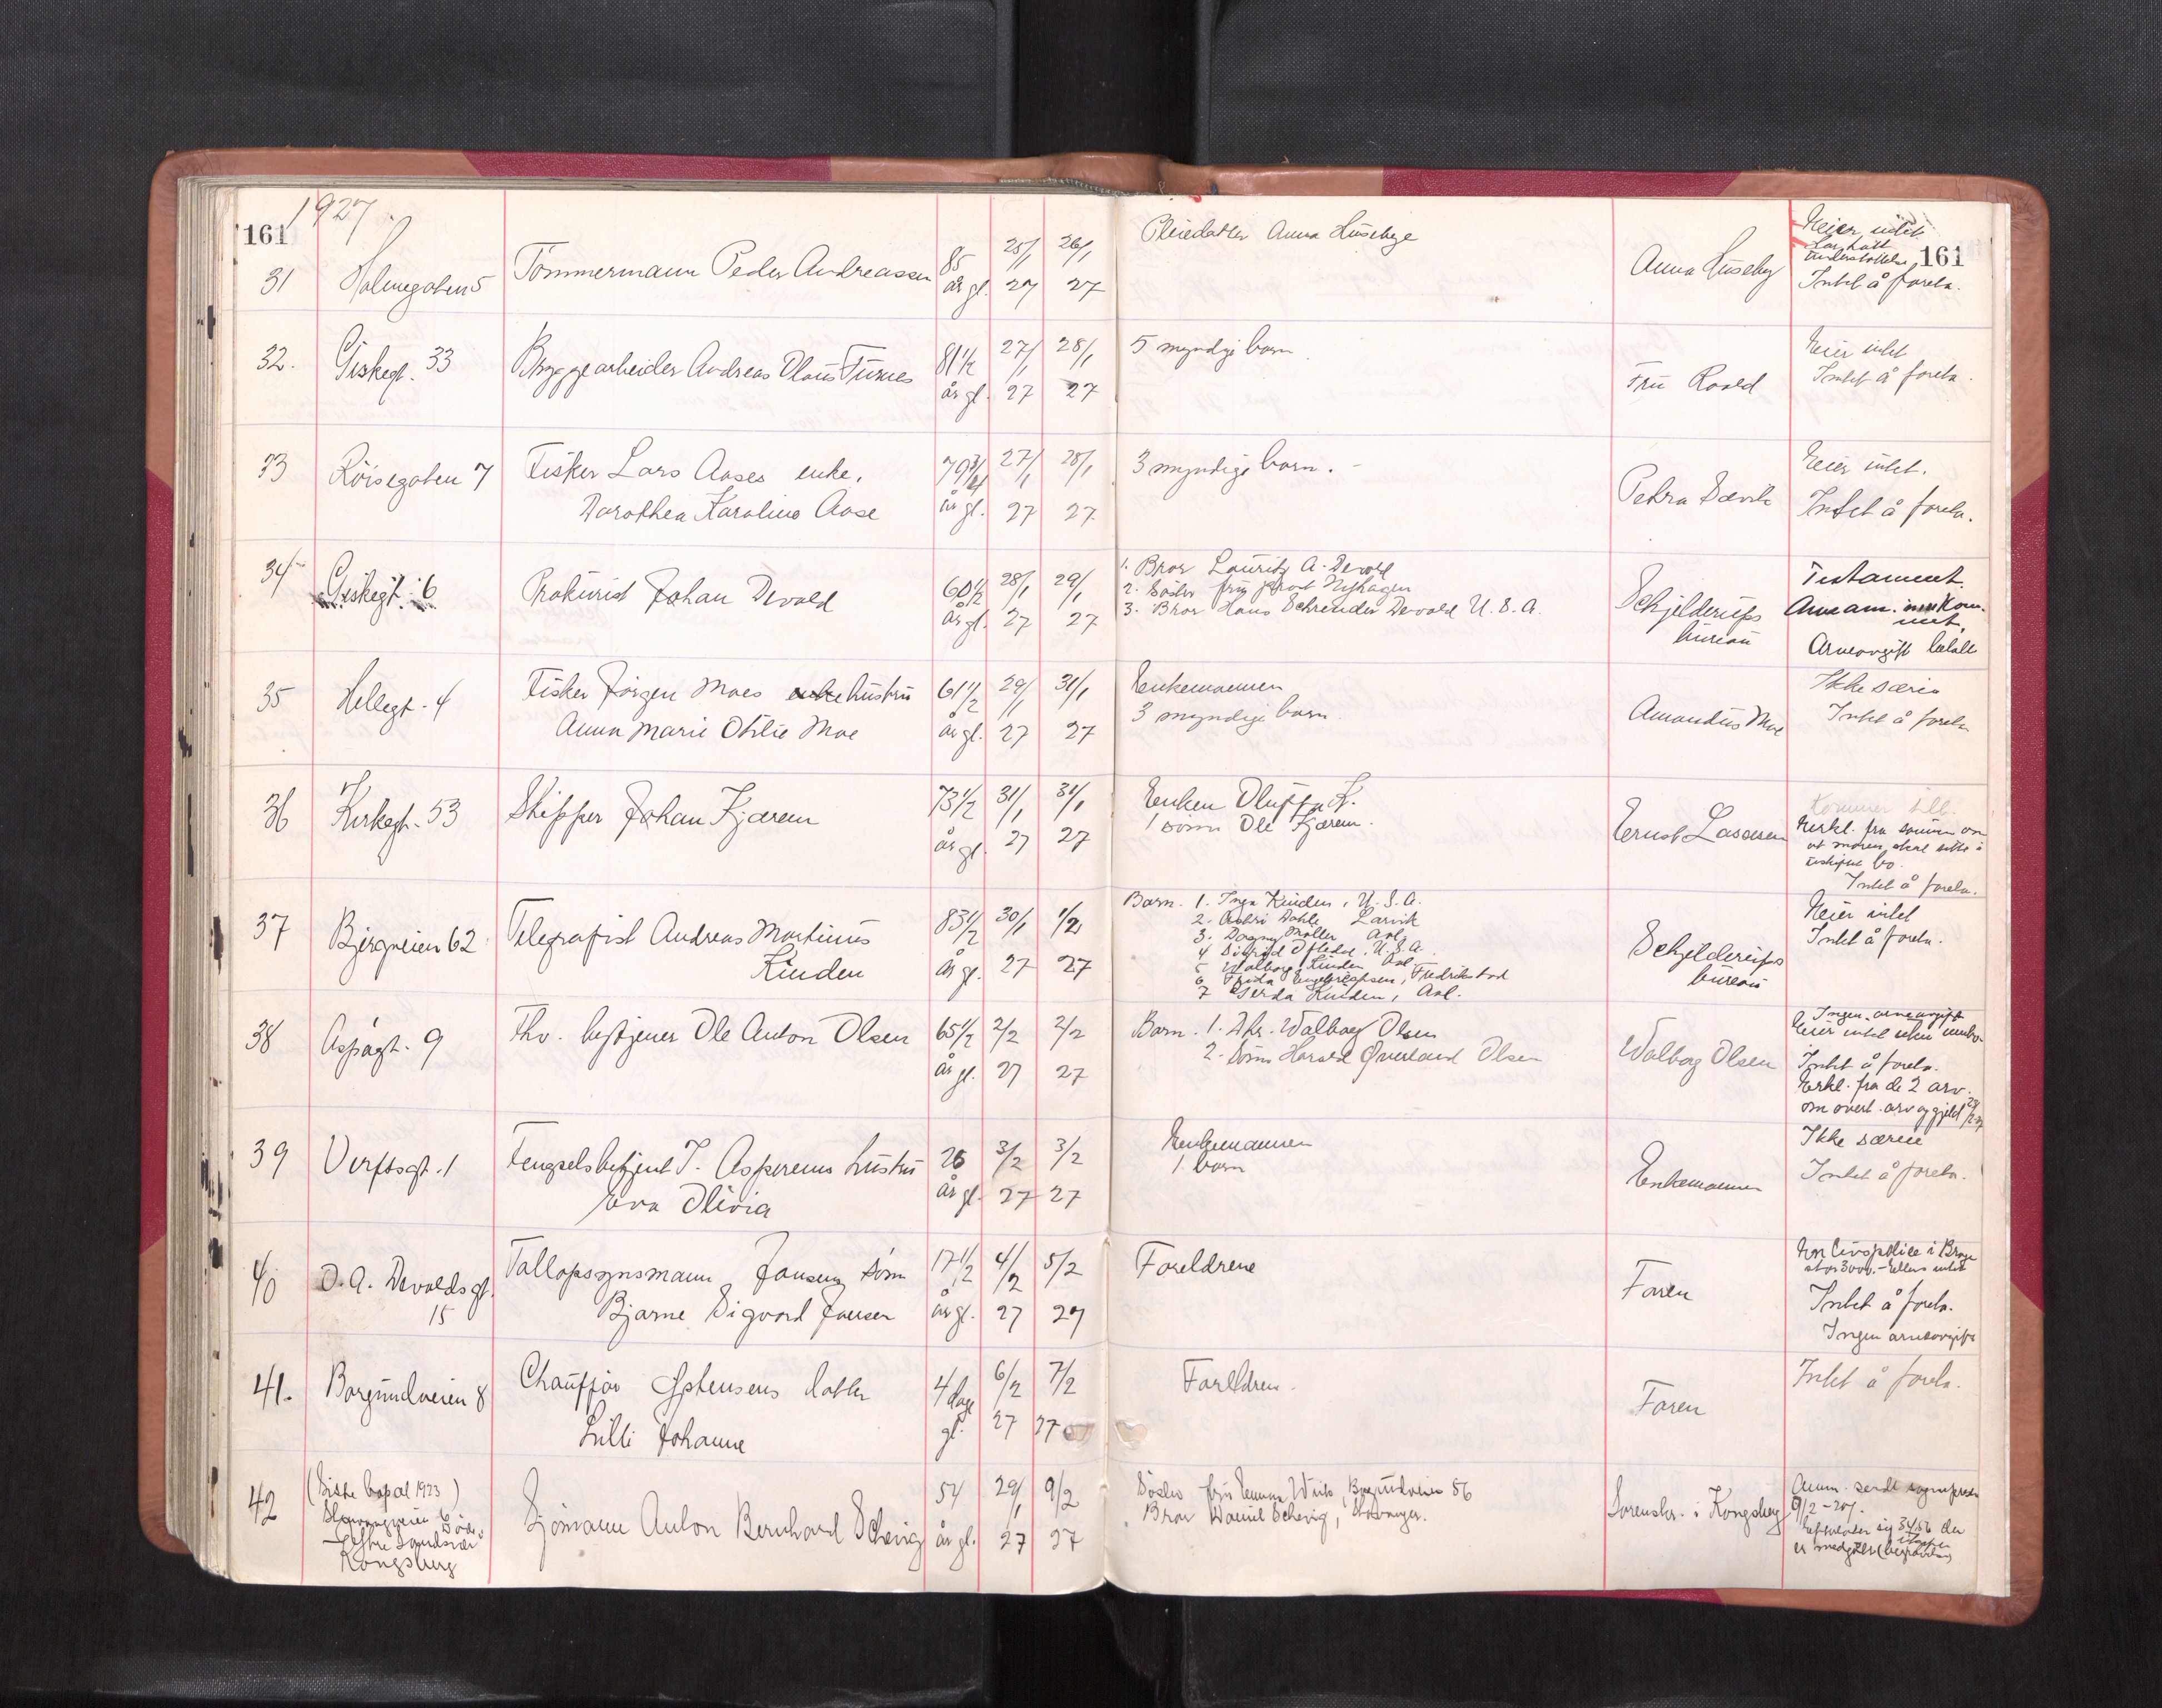 1927
161
161
31 Holmegaten 5 Tömmermann Peder Andreassen 85 år gl. 25/1 27 26/1 27 Pleiedatter Anna Huseby Anna Huseby
Eier intet
Har hatt
understøttelse
Intet å foreta.
32. Giskegt. 33 Bryggearbeider Andreas Olaus Furnes 81 1/2 år gl. 27/1 27 28/1 27 5 myndige barn. Fru Roald
Eier intet
Intet å foreta.
33 Röisegaten 7 Fisker Lars Aases enke,
Dorothea Karoline Aase 79 3/4 år gl. 27/1 27 28/1 27 3 myndige barn. Petra Sævik
Eier intet.
Intet å foreta.
34 Giskegt. 6 Prokurist Johan Devold 60 1/2 år gl. 28/1 27 29/1 27
1. Bror Lauritz A. Devold
2. Söster fru prost
3. Bror Hans Schreuder Devold U.S.A.
Schjelderups
bureau
Testament
innkom-
met.
Arveavgift betalt
35 Hellegt. 4 Fisker Jörgen Moes enke hustru
Anna Marie Otilie Moe 61 1/2 år gl. 29/1 27 31/1 27
Enkemannen
3 myndige barn.
Amandus Moe
Ikke særeie
Intet å foreta
36 Kirkegt. 53 Skipper Johan Kjærem 73 1/2 år gl. 31/1 27 31/1 27
Enken Oluffa K.
1 sönn Ole Kjærem.
Ernst Lasasen
Kommer
Erkl. fra sönnen om
at moren skal sitte i
uskiftet bo.
Intet å foreta.
37 Bjergveien 62 Telegrafist Andreas Martinus
Kinden 83 1/2 år gl. 30/1 27 1/2 27
Barn. 1. Inga Kinden, U.S.A.
2. Dahle Larvik
3. Dagny Møller Aal.
4 Sigrid Oftedal, U.S.A.
5 Walborg Kinden Aal.
6 Frida Engebretsen, Fredrikstad
7 Gerda Kinden, Aal.
Schjelderups
bureau
Eier intet
Intet å foreta.
38 Aspögt. 9 Fhv. Ole Anton Olsen 65 1/2 år gl. 2/2 27 2/2 27
Barn. 1. Dtr. Walborg Olsen
2. Sönn Harald Øverland Olsen
Walborg Olsen
Ingen arveavgift
Eier intet uten innbo.
Intet å foreta.
Erkl. fra de 2 arv.
om overt. arv og gjeld
39 Verftsgt. 1 Fengselsbetjent J. Asperems hustru
Eva Olivia 26 år gl. 3/2 27 3/2 27
Enkemannen
1 barn
Enkemannen
Ikke særeie
Intet å foreta.
40 O. A. Devoldsgt.
15 Tollopsynsmann Jansens sönn
Bjarne Sigvard Jansen 17 1/2 år gl. 4/2 27 5/2 27
Foreldrene
Faren
En livspolice i Brage
stor 3000.- Ellers intet
Intet å foreta.
Ingen arveavgift
41. Borgundveien 8 Chauffør Gjstensens datter
Lilli Johanne 4 dage gl. 6/2 27 7/2 27
Foreldren.
Faren
Intet å foreta.
42 (Siste bopæl 1923)
Kongsberg
Sjömann Anton Bernhard Schevig 54 år gl. 29/1 27 9/2 27
Söster fru Emma Wiik, Borgundveien 56
Bror Daniel Schevig, Stavanger.
Sorenskr. i Kongsberg
Anm. sendt
9/2-27.
Efterlater sig 34,56 der
er medgått (begravelse)